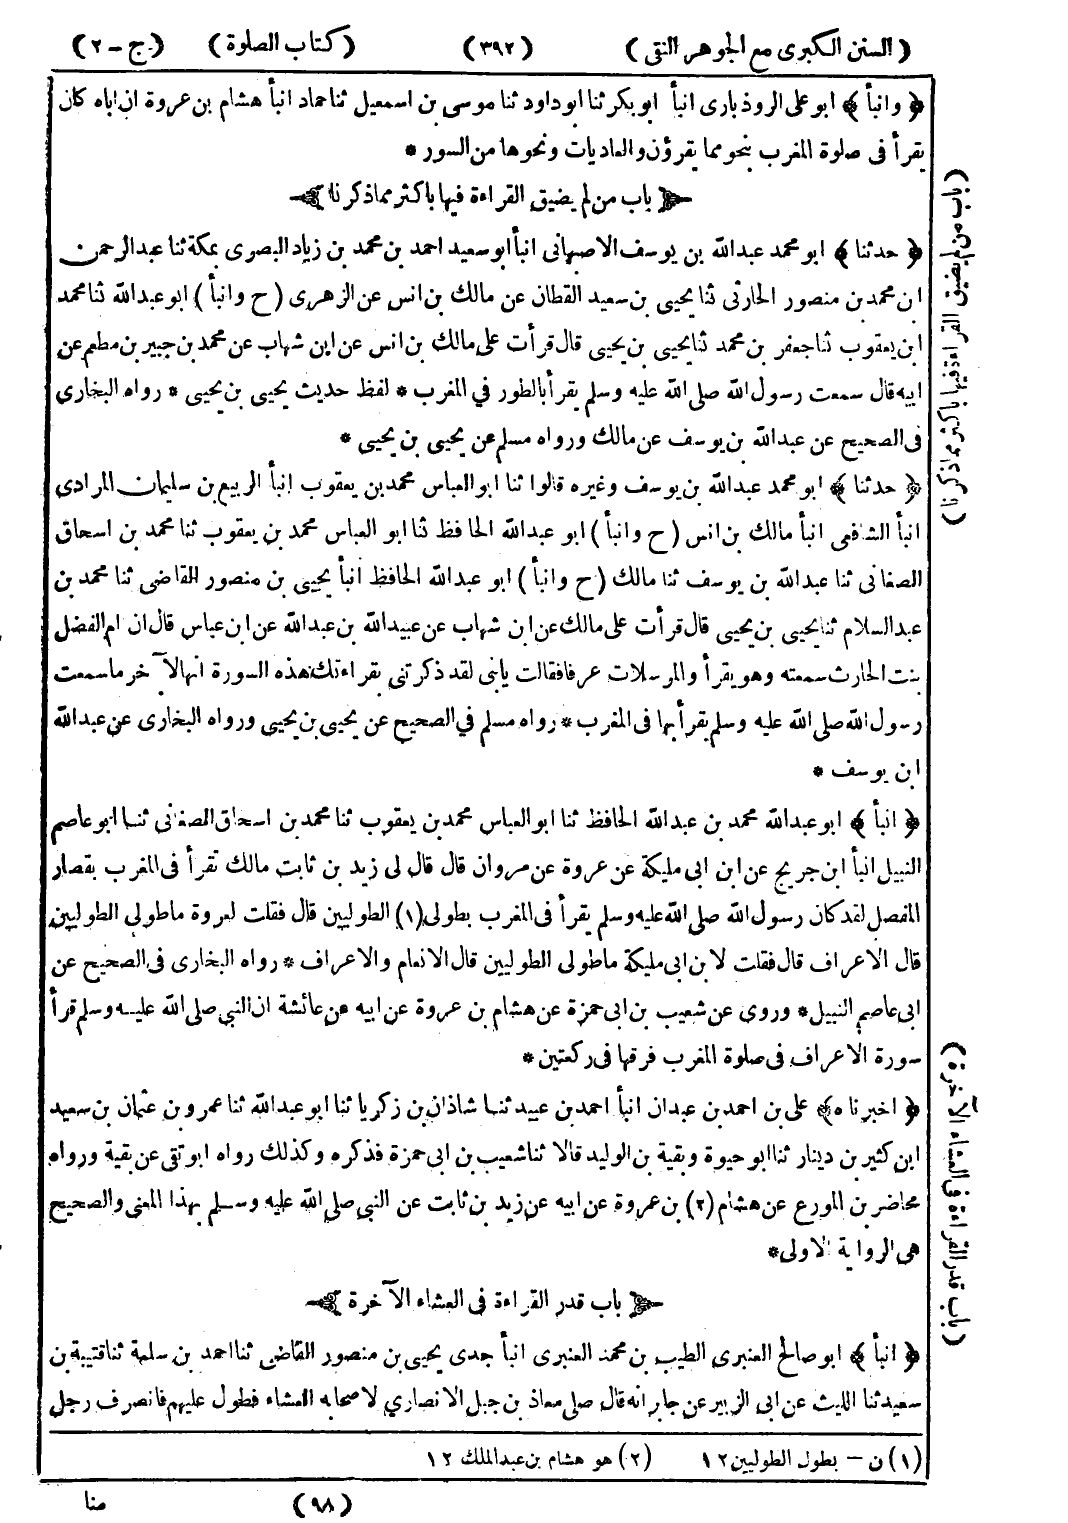 (السنن الكبرى مع الجوهر النقى) (٣٩٢) (كتاب الصلوة) (ج - ٢)
﴿ وانبأ ﴾ ابو على الروذبارى انبأ ابو بكر ثنا ابو داود ثنا موسى بن اسمعيل ثنا حماد انبأ هشام بن عروة ان اباه كان
يقرأ فى صلوة المغرب بنحو مما يقرؤن والعاديات ونحوها من السور *
باب من لم يضيق القراءة فيها باكثر مما ذكرنا
﴿ حدثنا ﴾ ابو محمد عبدالله بن يوسف الاصبهانى انبأ ابو سعيد احمد بن محمد بن زياد البصرى بمكة ثنا عبدالرحمن
ابن محمد بن منصور الحارثى ثنا يحيى بن سعيد القطان عن مالك بن انس عن الزهرى (ح وانبأ) ابو عبدالله ثنا محمد
ابن يعقوب ثنا جعفر بن محمد ثنا يحيى بن يحيى قال قرأت على مالك بن انس عن ابن شهاب عن محمد بن جبير بن مطعم عن
ابيه قال سمعت رسول الله صلى الله عليه وسلم يقرأ بالطور في المغرب * لفظ حديث يحيى بن يحيى * رواه البخارى
فى الصحيح عن عبدالله بن يوسف عن مالك ورواه مسلم عن يحيى بن يحيى *
﴿ حدثنا ﴾ ابو محمد عبدالله بن يوسف وغيره قالوا ثنا ابو العباس محمد بن يعقوب انبأ الربيع بن سليمان المرادى
انبأ الشافعى انبأ مالك بن انس (ح وانبأ) ابو عبدالله الحافظ ثنا ابو العباس محمد بن يعقوب ثنا محمد بن اسحاق
الصغانى ثنا عبدالله بن يوسف ثنا مالك (ح وانبأ) ابو عبدالله الحافظ انبأ يحيى بن منصور القاضى ثنا محمد بن
عبدالسلام ثنا يحيى بن يحيى قال قرأت على مالك عن ابن شهاب عن عبيدالله بن عبدالله عن ابن عباس قال ان ام الفضل
بنت الحارث سمعته وهو يقرأ والمرسلات عرفا فقالت يا بنى لقد ذكرتنى بقراءتك هذه السورة انها لآخر ما سمعت
رسول الله صلى الله عليه وسلم يقرأ بها فى المغرب * رواه مسلم في الصحيح عن يحيى بن يحيى ورواه البخارى عن عبدالله
ابن يوسف *
﴿ انبأ ﴾ ابو عبدالله محمد بن عبدالله الحافظ ثنا ابو العباس محمد بن يعقوب ثنا محمد بن اسحاق الصغانى ثنا ابو عاصم
النبيل انبأ ابن جريج عن ابن ابى مليكة عن عروة عن مروان قال قال لى زيد بن ثابت مالك تقرأ فى المغرب بقصار
المفصل لقد كان رسول الله صلى الله عليه وسلم يقرأ فى المغرب بطولى (١) الطوليين قال فقلت لعروة ما طولى الطوليين
قال الاعراف قال فقلت لابن ابى مليكة ما طولى الطوليين قال الانعام والاعراف * رواه البخارى فى الصحيح عن
ابى عاصم النبيل * وروى عن شعيب بن ابى حمزة عن هشام بن عروة عن ابيه عن عائشة ان النبي صلى الله عليه وسلم قرأ
سورة الاعراف فى صلوة المغرب فرقها فى ركعتين *
﴿ اخبرناه ﴾ على بن احمد بن عبدان انبأ احمد بن عبيد ثنا شاذان بن زكريا ثنا ابو عبدالله ثنا عمرو بن عثمان بن سعيد
ابن كثير بن دينار ثنا ابو حيوة وبقية بن الوليد قالا ثنا شعيب بن ابى حمزة فذكره وكذلك رواه ابو تقى عن بقية ورواه
محاضر بن المورع عن هشام (٢) بن عروة عن ابيه عن زيد بن ثابت عن النبي صلى الله عليه وسلم بهذا المعنى والصحيح
هى الرواية الاولى *
باب قدر القراءة فى العشاء الآخرة
﴿ انبأ ﴾ ابو صالح العنبرى الطيب بن محمد العنبرى انبأ جدى يحيى بن منصور القاضى ثنا احمد بن سلمة ثنا قتيبة بن
سعيد ثنا الليث عن ابى الزبير عن جابر انه قال صلى معاذ بن جبل الانصاري لاصحابه العشاء فطول عليهم فانصرف رجل
(١) ن - بطول الطوليين ١٢ (٢) هو هشام بن عبدالملك ١٢
(٩٨) منا
(باب من لم يضيق القراءة فيها باكثر مما ذكرنا)
(باب قدر القراءة فى العشاء الآخرة)